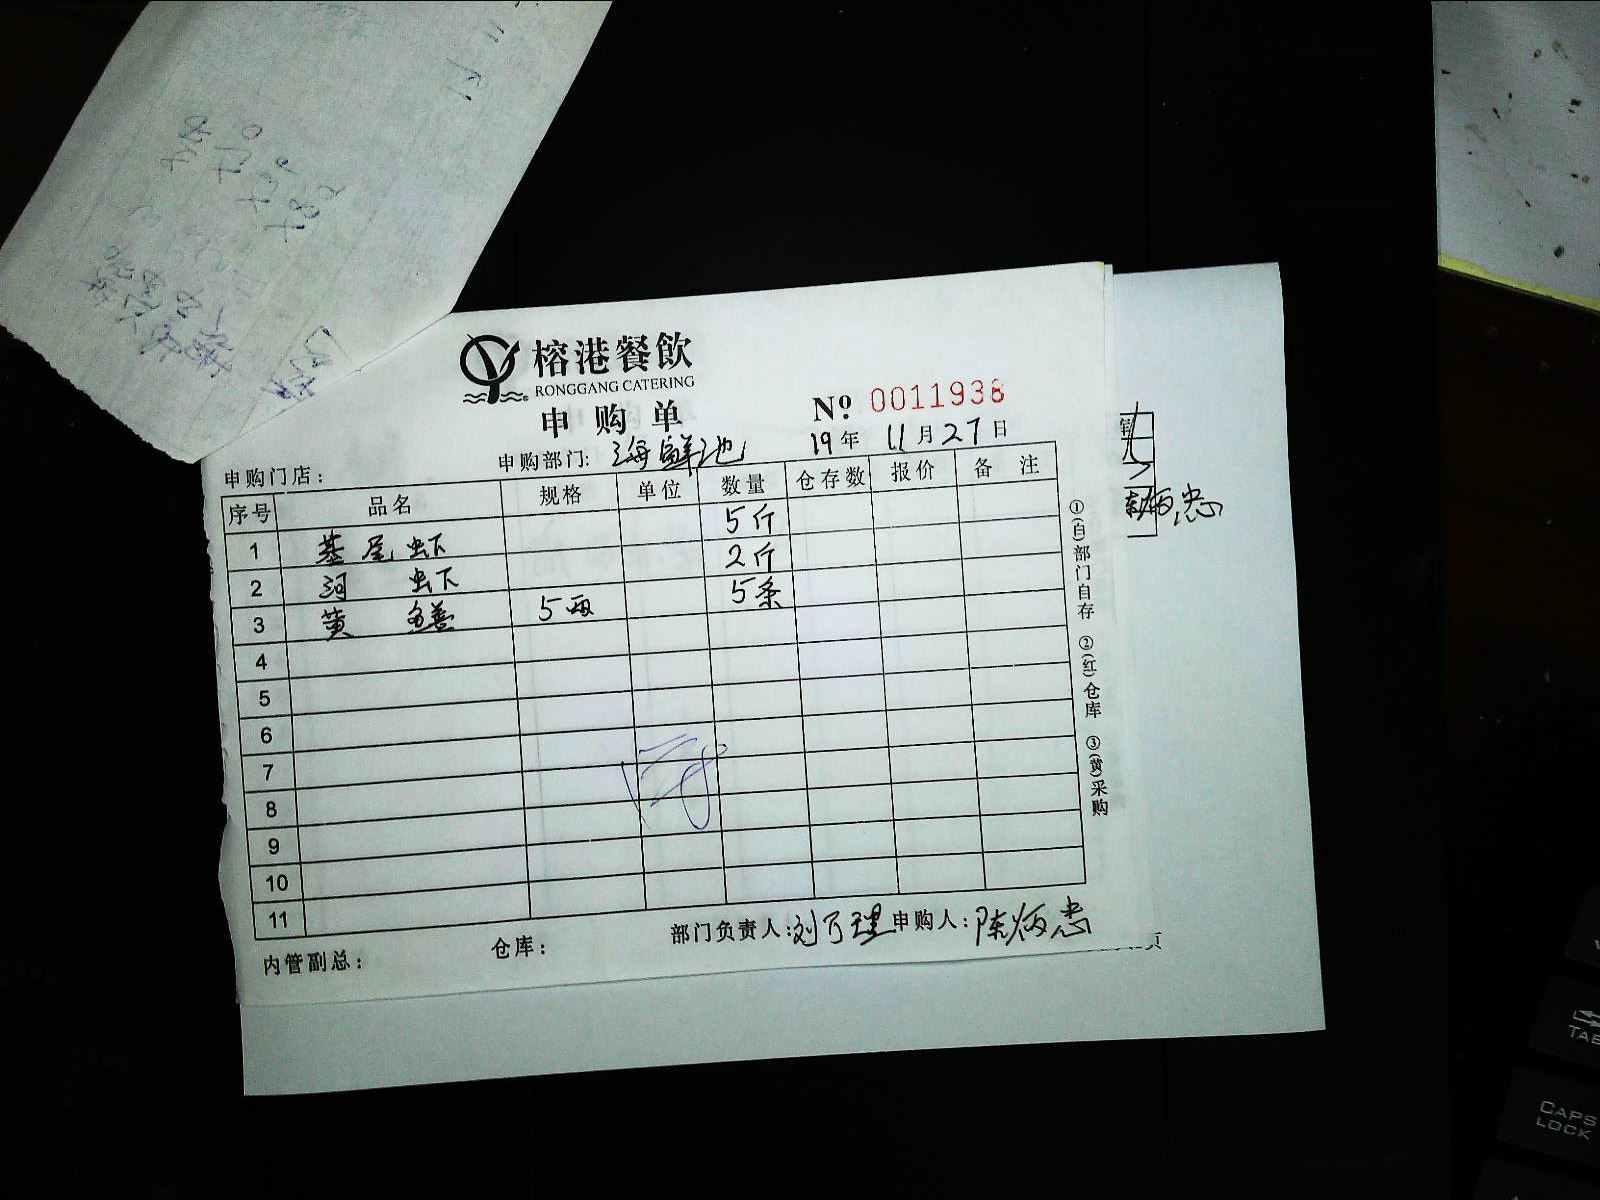 榕港餐飲
RONGGANG CATERING
申购单
Nº 0011938
申购门店:
申购部门: 海鲜池
19年 11月27日
序号 品名 规格 单位 数量 仓存数 报价 备注
1 基尾虾 5斤
2 河虾 2斤
3 黄鳝 5两 5条
4
5
6
7
8
9
10
11
内管副总:
仓库:
部门负责人:刘万理
申购人:陈炳忠
①(白)部门自存 ②(红)仓库 ③(黄)采购
炳忠
页
TAB
CAPS
LOCK